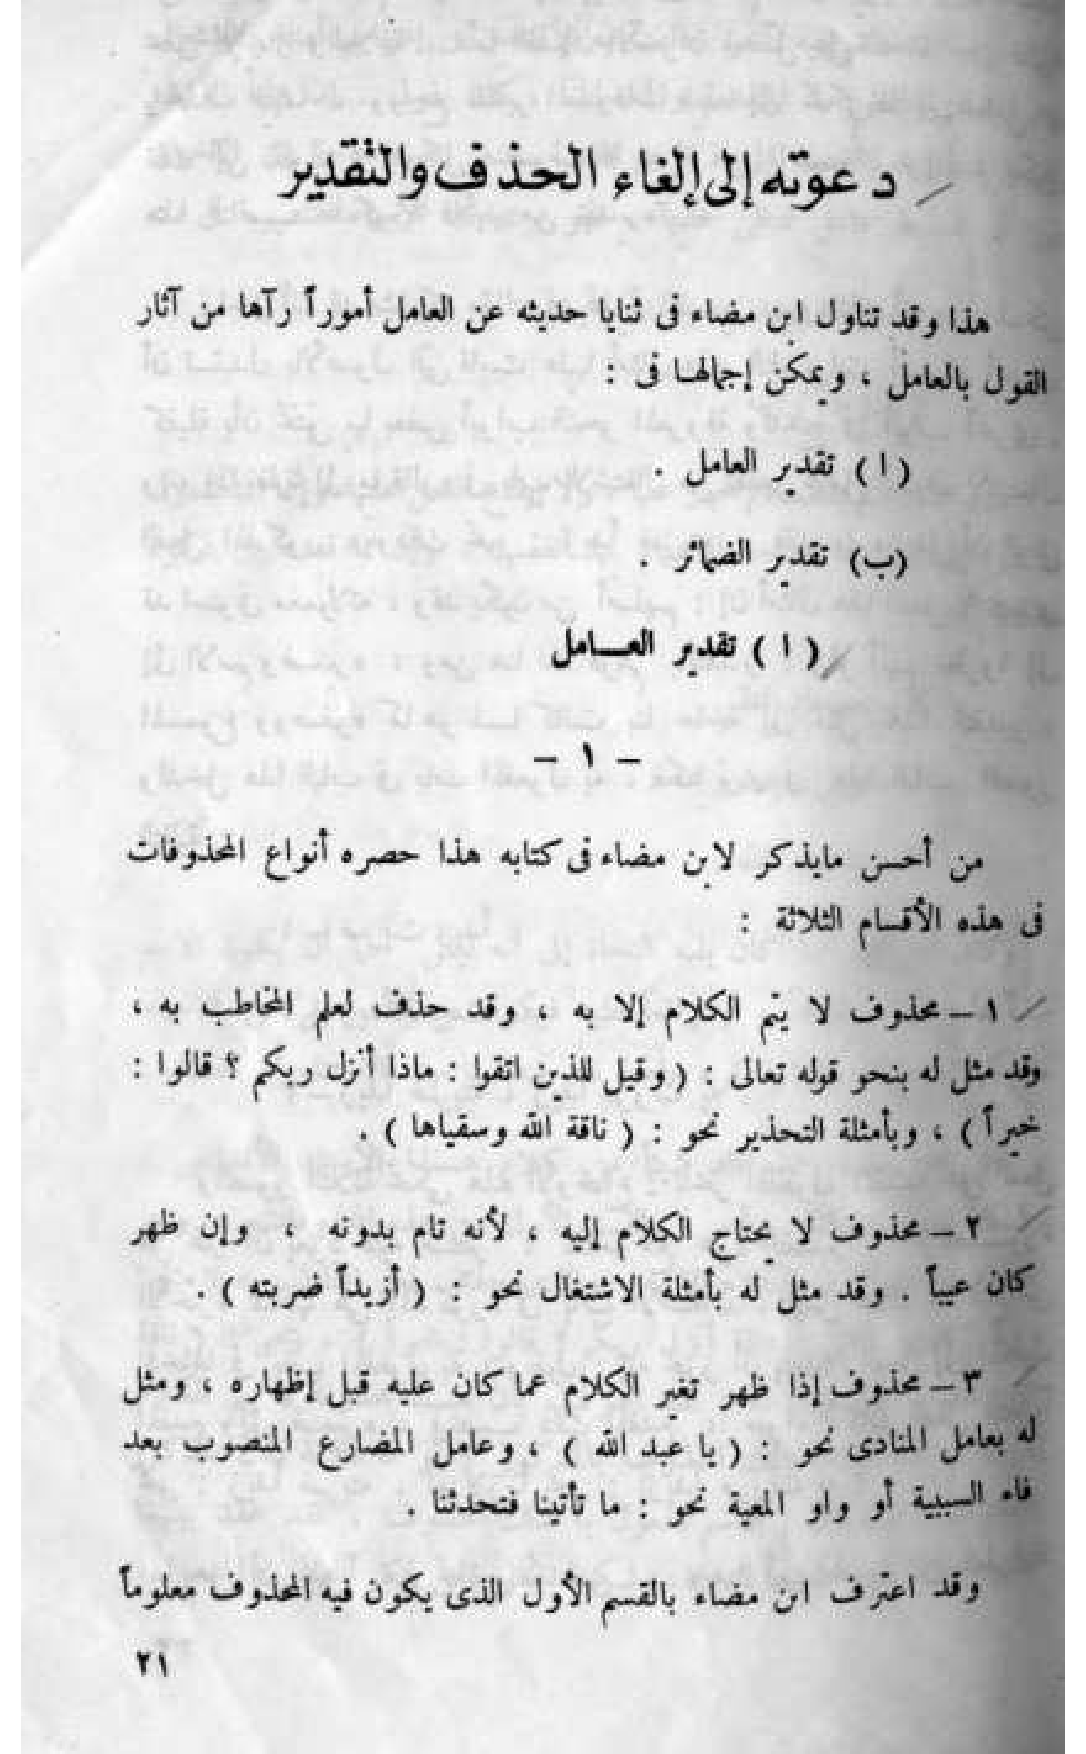 دعوته إلى إلغاء الحذف والتقدير
هذا وقد تناول ابن مضاء فى ثنايا حديثه عن العامل أموراً رآها من آثار
القول بالعامل ، ويمكن إجمالها فى :
( ا ) تقدير العامل .
(ب) تقدير الضمائر .
( ا ) تقدير العـامل
– ١ –
من أحسن مايذكر لابن مضاء فى كتابه هذا حصره أنواع المحذوفات
فى هذه الأقسام الثلاثة :
١ – محذوف لا يتم الكلام إلا به ، وقد حذف لعلم المخاطب به ،
وقد مثل له بنحو قوله تعالى : ( وقيل للذين اتقوا : ماذا أنزل ربكم ؟ قالوا :
خيراً ) ، وبأمثلة التحذير نحو : ( ناقة الله وسقياها ) .
٢ – محذوف لا يحتاج الكلام إليه ، لأنه تام بدونه ، وإن ظهر
كان عيباً . وقد مثل له بأمثلة الاشتغال نحو : ( أزيداً ضربته ) .
٣ – محذوف إذا ظهر تغير الكلام عما كان عليه قبل إظهاره ، ومثل
له بعامل المنادى نحو : ( يا عبد الله ) ، وعامل المضارع المنصوب بعد
فاء السببية أو واو المعية نحو : ما تأتينا فتحدثنا .
وقد اعترف ابن مضاء بالقسم الأول الذى يكون فيه المحذوف معلوماً
٢١